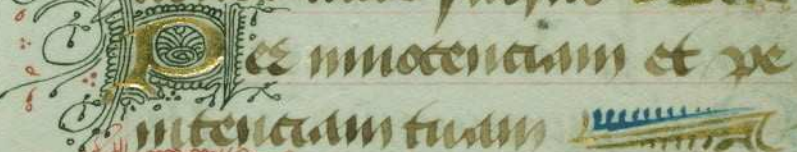 Per innocenciam et pe
nitenciam tuam